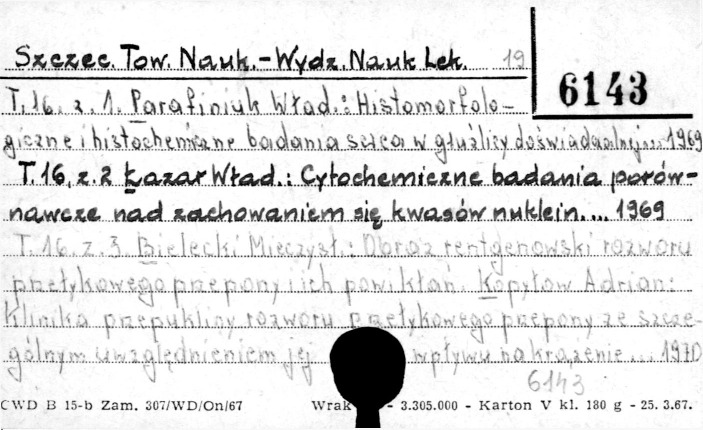 Szczec. Tow. Nauk. - Wydz. Nauk Lek. 19
6143
T. 16. z. 1. Parafiniuk Wład.: Histomorfolo-
giczne i histochemiczne badania serca w gruźlicy doświadczalnej... 1969
T. 16, z. 2 Łazar Wład.: Cytochemiczne badania porów-
nawcze nad zachowaniem się kwasów nuklein. ... 1969
T. 16. z. 3. Bielecki Mieczysł.: Obraz rentgenowski rozworu
przełykowego przepony i ich powikłań. Kopyłow Adrian:
Klinika przepukliny rozworu przełykowego przepony ze szcze-
gólnym uwzględnieniem jej wpływu na krążenie ... 1970
6143
CWD B 15-b Zam. 307/WD/On/67 - 3.305.000 - Karton V kl. 180 g - 25. 3.67.